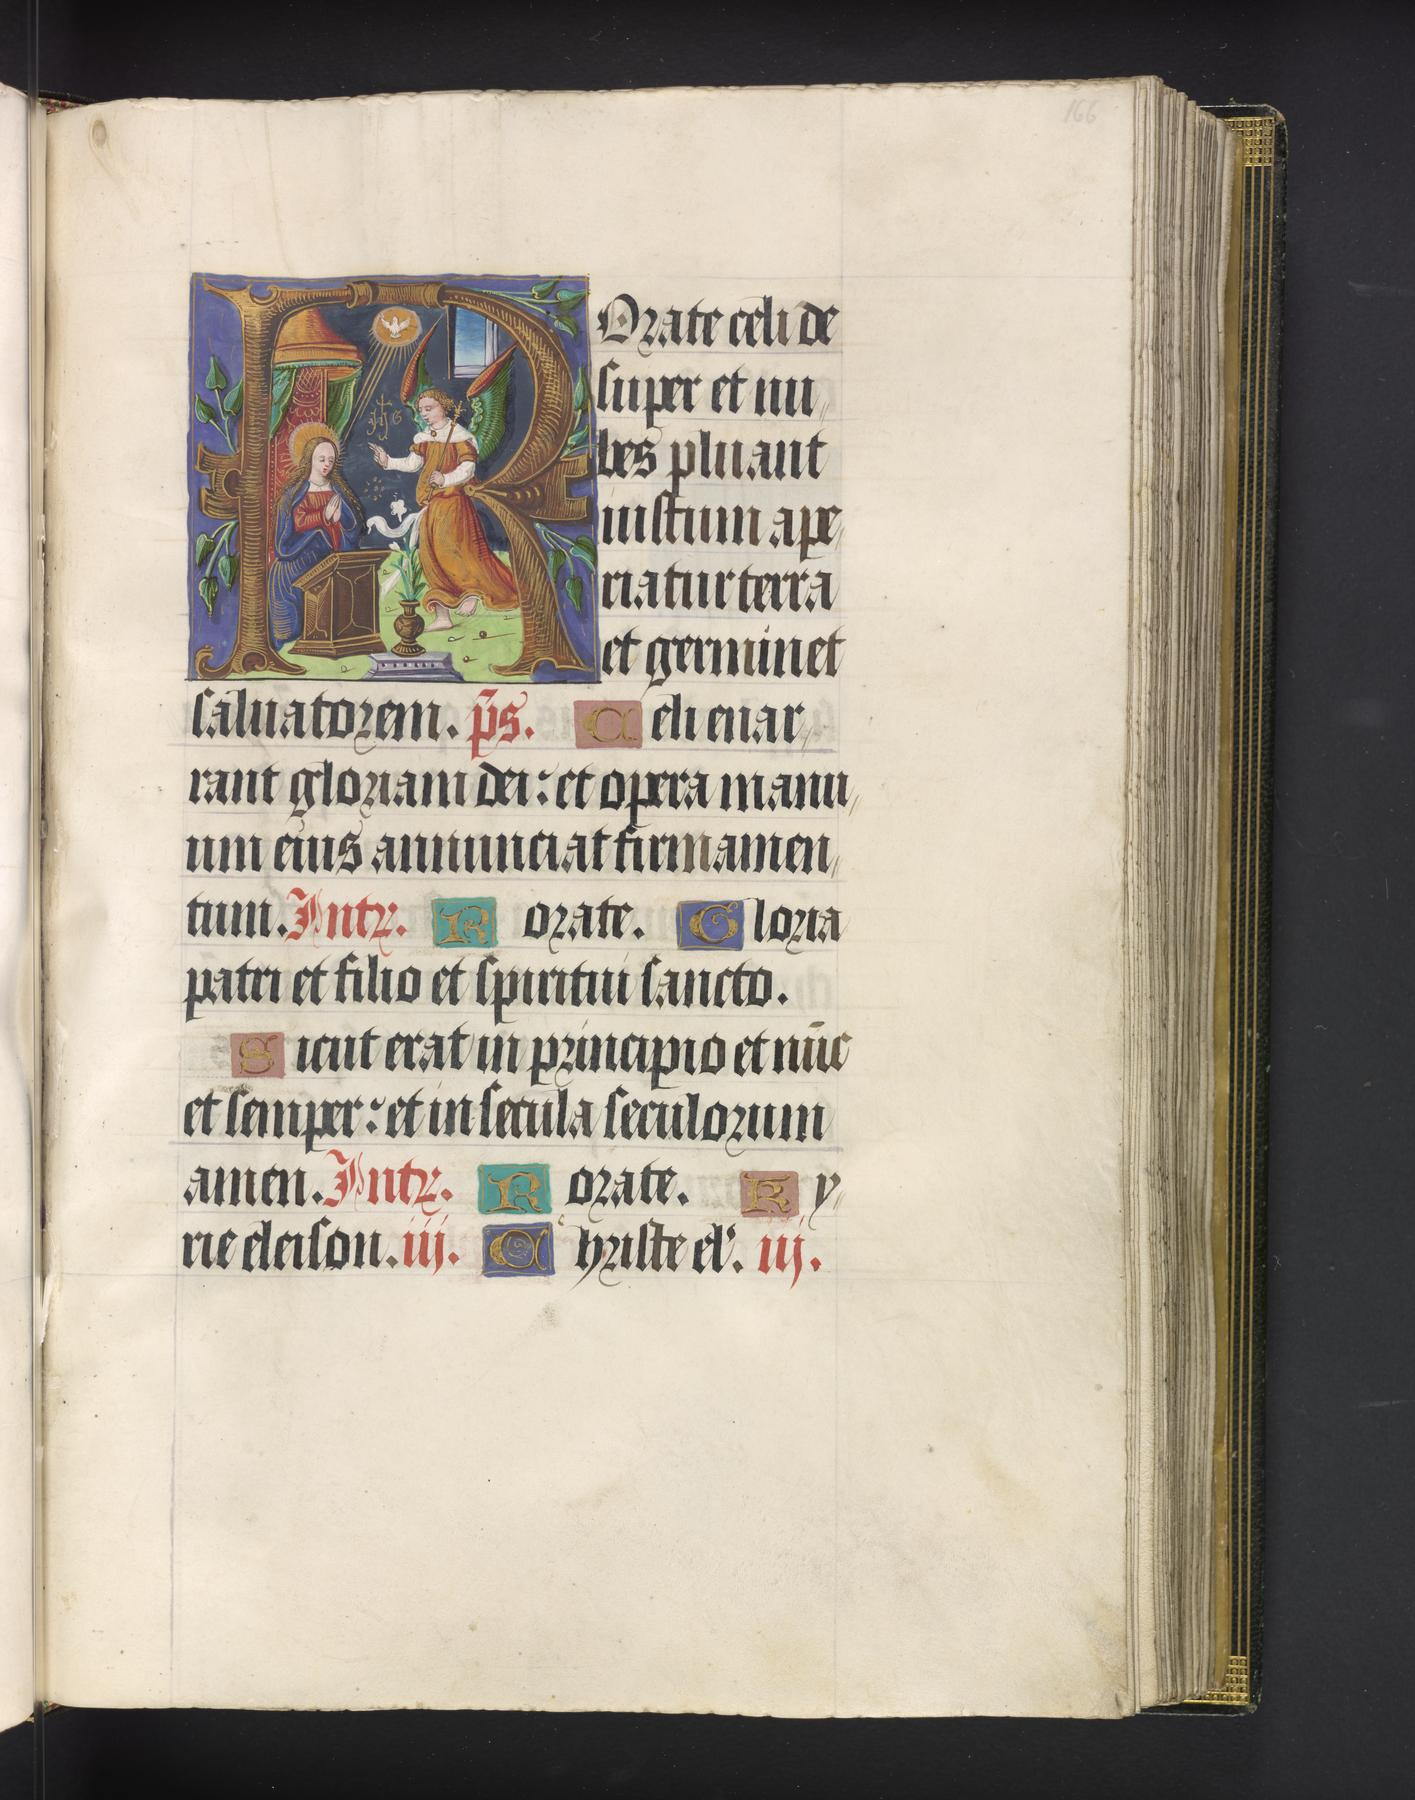 166
ROrate celi de
super et nu
bes pluant
iustum ape
riatur terra
et germinet
saluatorem. ps. Celi enar
rant gloriam dei: et opera manu
um eius annunciat firmamen
tum. Intr. Rorate. Gloria
patri et filio et spiritui sancto.
Sicut erat in principio et nūc
et semper: et in secula seculorum
amen. Intr. Rorate. Ky
rie eleison. iii. Christe el'. iij.